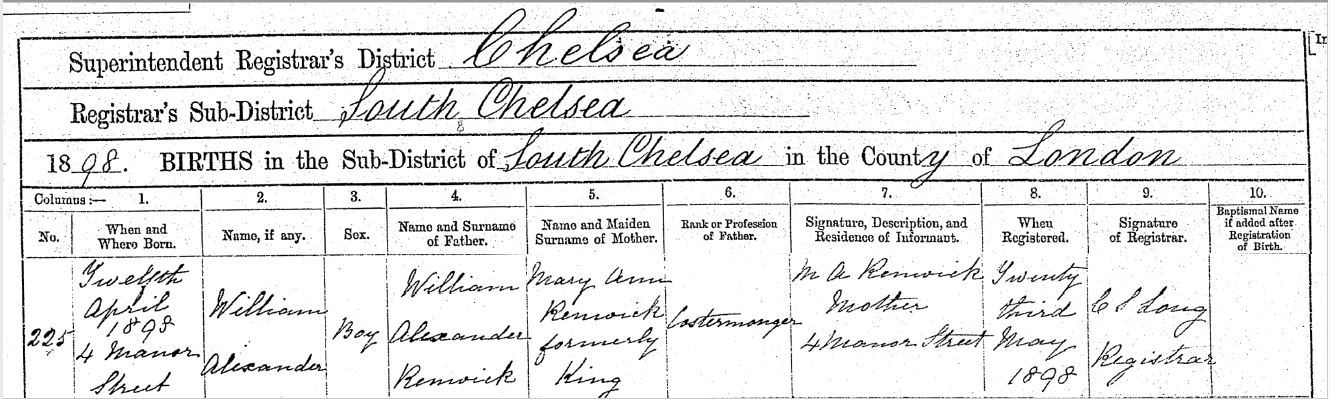 Superintendent Registrar's District Chelsea
Registrar's Sub-District South Chelsea
1898. BIRTHS in the Sub-District of South Chelsea in the County of London
Columns:— 1. 2. 3. 4. 5. 6. 7. 8. 9. 10.
No. When and Where Born. Name, if any. Sex. Name and Surname of Father. Name and Maiden Surname of Mother. Rank or Profession of Father. Signature, Description, and Residence of Informant. When Registered. Signature of Registrar. Baptismal Name if added after Registration of Birth.
225
Twelfth
April
1898
4 Manor
Street
William
Alexander
Boy
William
Alexander
Renwick
Mary Ann
Renwick
formerly
King
Costermonger
M A Renwick
Mother
4 Manor Street
Twenty
third
May
1898
C S Long
Registrar
In